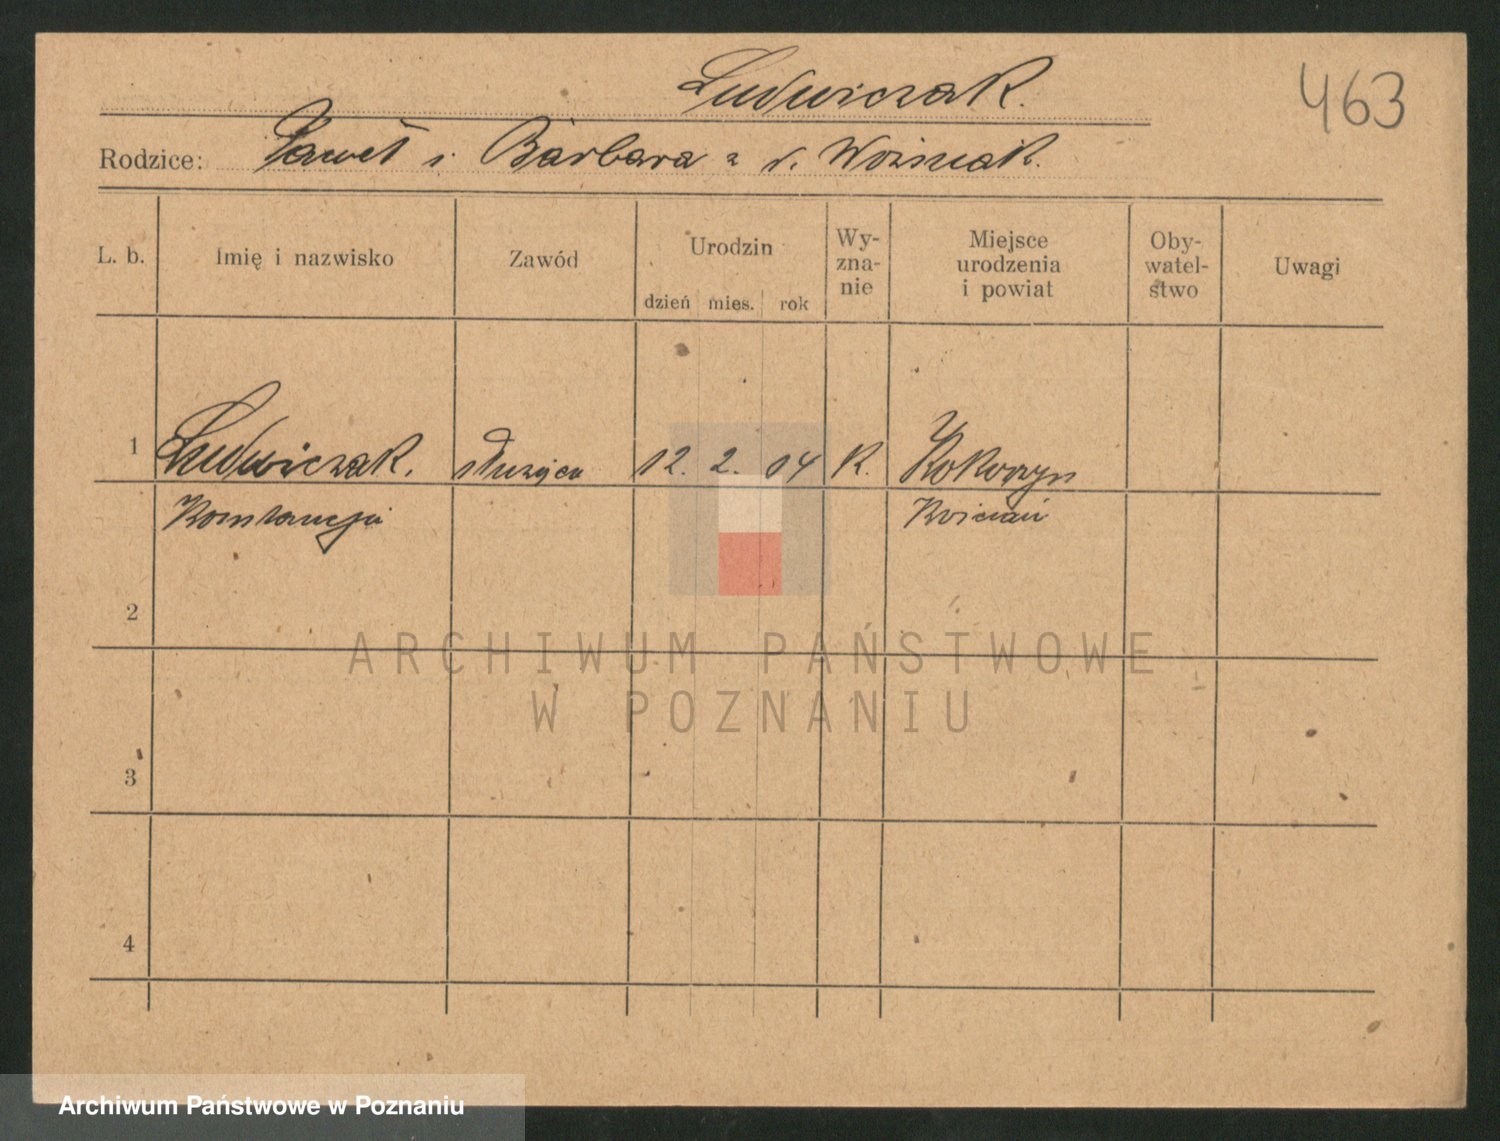 Ludwiczak.
463
Rodzice: Paweł i Barbara z d. Woźniak.
L. b. Imię i nazwisko Zawód Urodzin dzień mies. rok Wy-zna-nie Miejsce urodzenia i powiat Oby-watel-stwo Uwagi
1 Ludwiczak. służąca 12. 2. 04 K. Kokorzyn
Konstancja Kościan
2
ARCHIWUM PAŃSTWOWE
W POZNANIU
3
4
Archiwum Państwowe w Poznaniu